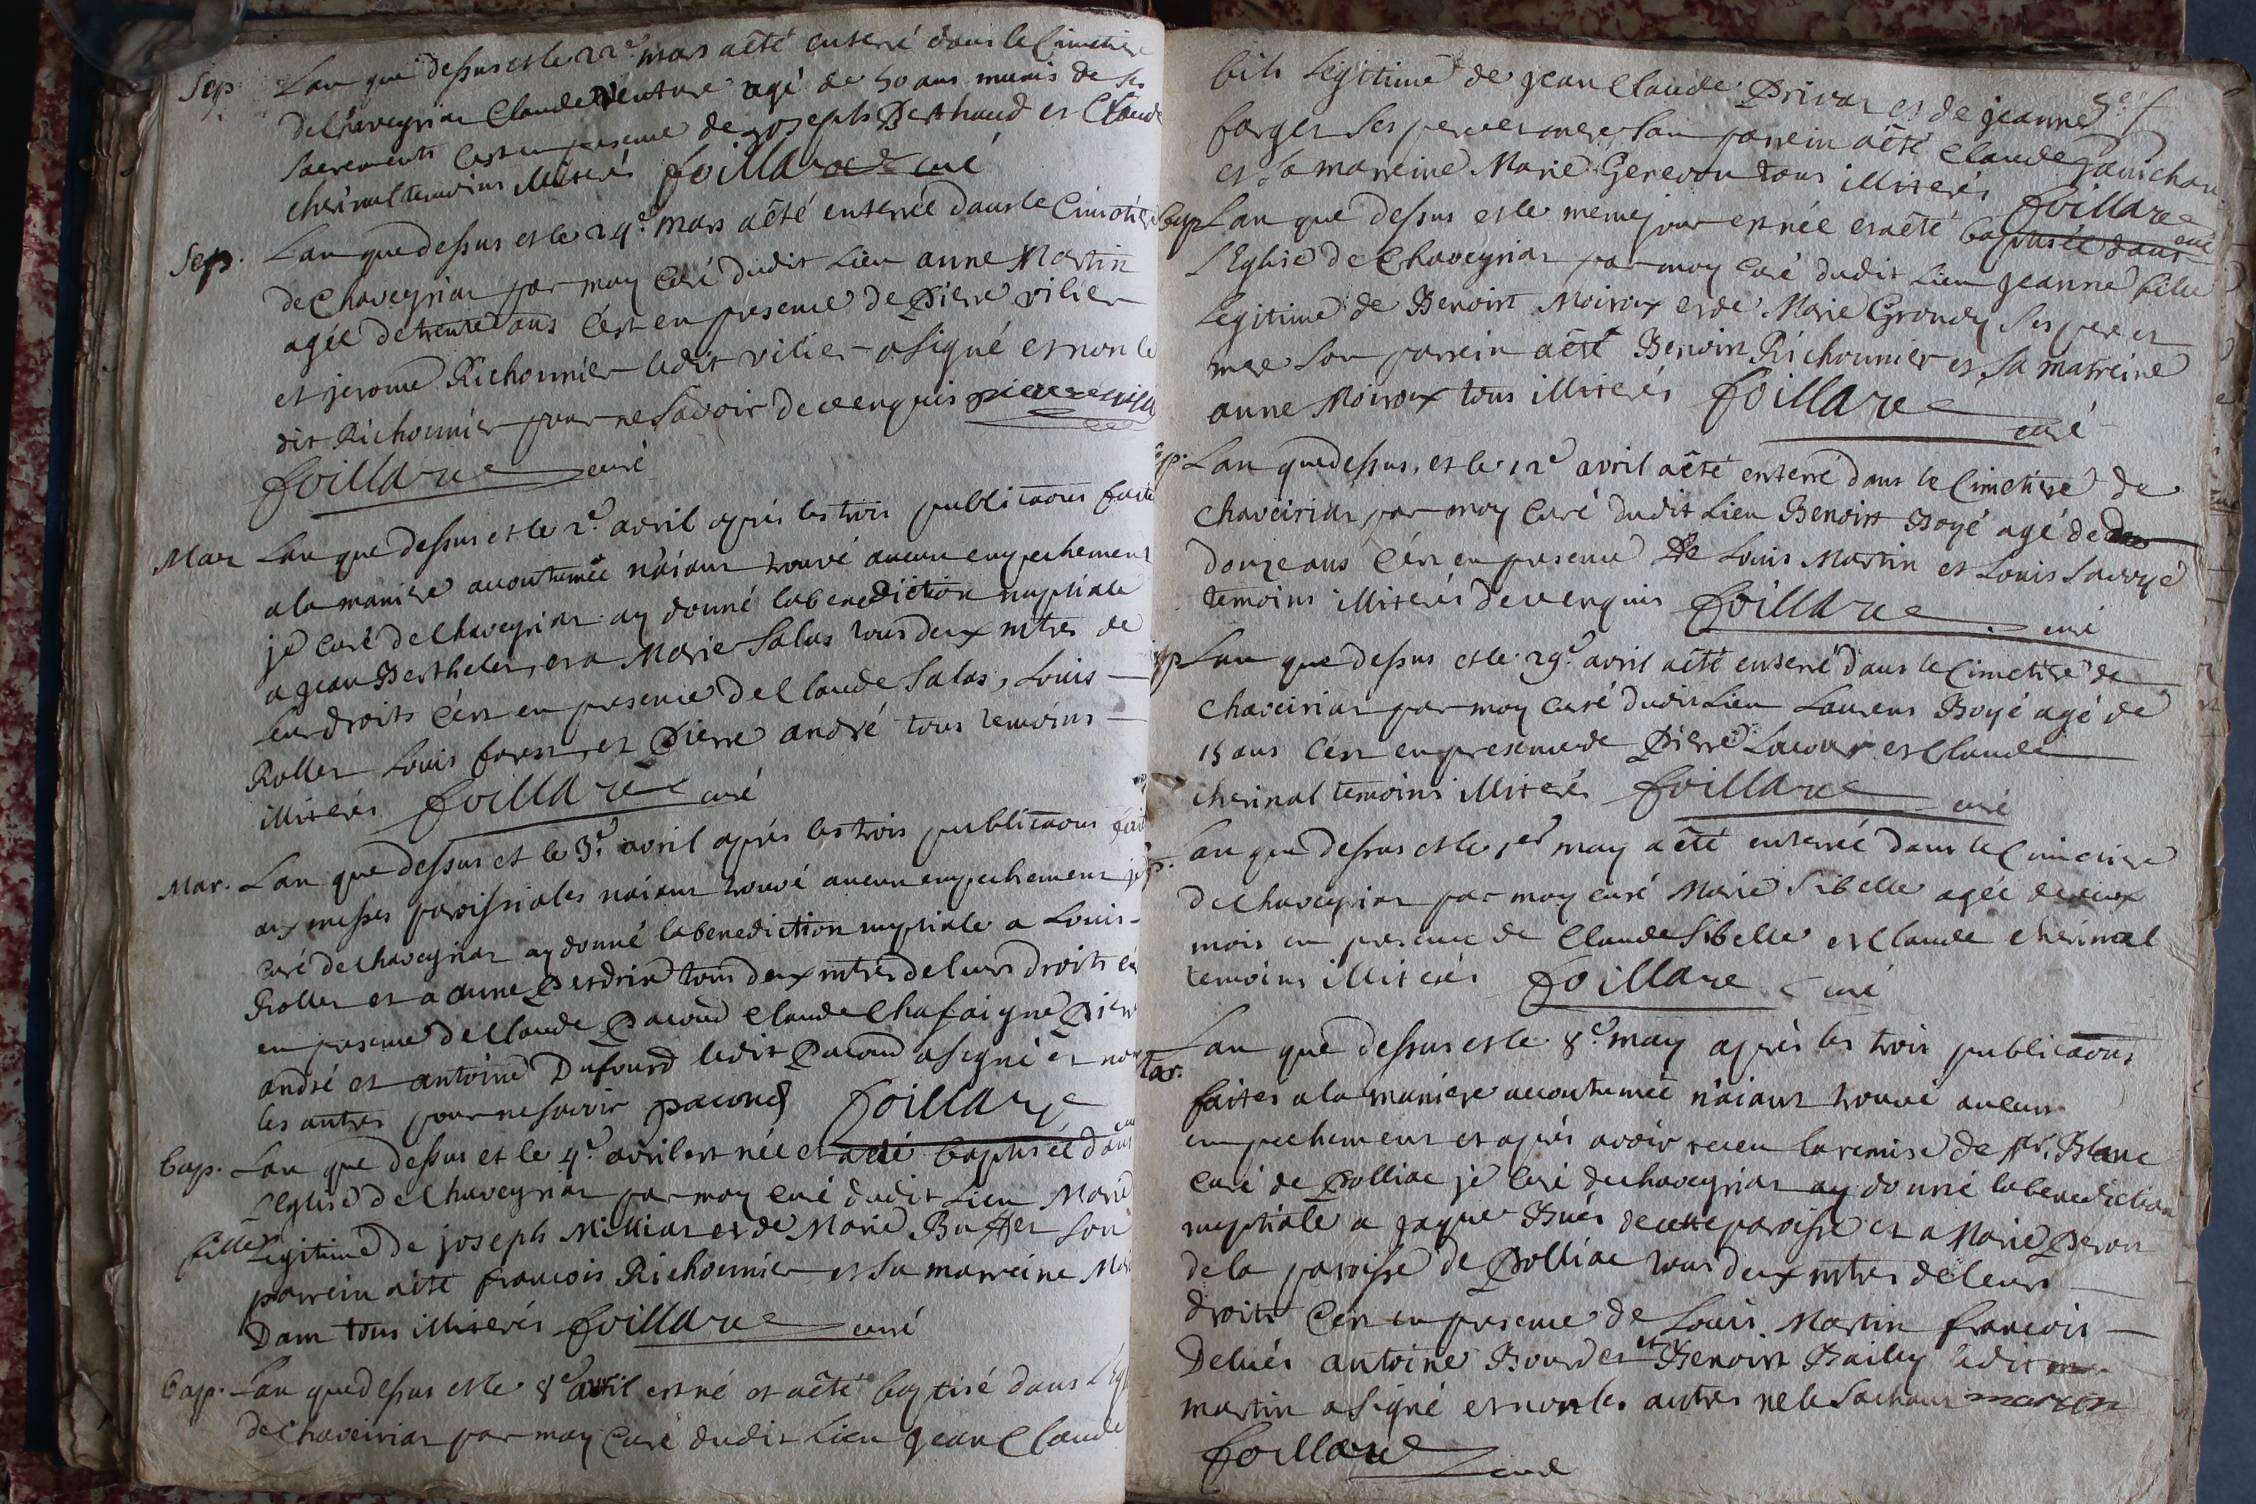 Sep. Lan que dessus et le 22e mars a êté enterré dans le Cimetiere
de Chaveyriat Claude Venture agé de 50 ans munis de ses
sacrements c'est en presence de joseph Berthaud et Claude
cherinal temoins illiterés foillard curé
Sep. Lan que dessus et le 24e mars a êté enterrée dans le Cimetiere
de Chaveyriat par moy curé dudit Lieu anne Martin
agée de trente ans c'est en presence de Pierre vilier
et jerome Richonnier ledit vilier a signé et non le
dit Richonnier pour ne savoir de ce enquis pierre
foillard curé
Mar Lan que dessus et le 2e avril aprés les trois publicaons faites
a la maniere accoutumée n'aiant trouvé aucun empechement
je curé de Chaveyriat ay donné la benediction nuptiale
a jean Berthelet, et a Marie Salas tous deux mtres de
leur droits c'est en presence de Claude Salas, Louis
Rollet Louis forest, et Pierre andré tous temoins
illiterés foillard curé
Mar. Lan que dessus et le 3e avril aprés les trois publicaons
aux messes paroissiales n'aiant trouvé aucun empechement je
curé de chaveyriat ay donné la benediction nuptiale a Louis
Rollet et a anne Perdrix tous deux mtres de leurs droits
en presence de Claude Pacoud Claude Chafaigne Pierre
andré et antoine Dufourd ledit Pacoud a signé et non
les autres pour ne savoir pacoud foillard curé
bap. Lan que dessus et le 4e avril est née et a êté baptisée dans
l'Eglise de Chaveyriat par moy curé dudit Lieu Marie
fille Legitime de joseph Milliat et de Marie Buffet son
parrein a êté francois Richonnier et sa marreine
Dam tous illiterés foillard curé
bap. Lan que dessus et le 8e avril est né et a êté baptisé dans
de chaveiriat par moy Curé dudit Lieu jean Claude
fils Legitime de jean Claude Privat et de jeanne
forget ses pere et mere, son parrein a êté Claude
et sa marreine Marie Gerevou tous illiterés foillard curé
bap Lan que dessus et le meme jour est née et a êté baptisée dans
l'Eglise de Chaveyriat par moy curé dudit Lieu jeanne fille
legitime de Benoist Moiroux et de Marie Grondy ses pere et
mere son parrein a êté Benoist Richonnier et sa marreine
anne Moiroux tous illiterés foillard curé
Lan que dessus, et le 12e avril a êté enterré dans le Cimetiere de
chaveiriat par moy Curé dudit Lieu Benoist Boyé agé de
douze ans c'est en presence de Louis Martin et Louis Savoye
temoins illiterés de ce enquis foillard curé
Lan que dessus et le 29e avril a êté enterré dans le Cimetiere de
chaveiriat par moy curé dudit Lieu Laurens Boyé agé de
15 ans c'est en presence de Pierre Lacour et Claude
cherinal temoins illiterés foillard curé
Lan que dessus et le 1er may a êté enterrée dans le Cimetiere
de chaveyriat par moy curé Marie Sibelle agée de deux
mois en presence de Claude Sibelle et Claude cherinal
temoins illiterés foillard curé
Mar. Lan que dessus et le 8e may aprés les trois publicaons
faites a la maniere accoutumée n'aiant trouvé aucun
empechement et aprés avoir receu la remise de Mr. Blanc
curé de Polliac je curé de chaveyriat ay donné la benediction
nuptiale a jaque Bués de cette paroisse et a Marie Peron
de la paroisse de Polliac tous deux mtres de leurs
droits c'est en presence de Louis Martin francois
Delués antoine Bourdet et Benoist Bailly ledit
martin a signé et non les autres ne le sachant martin
foillard curé